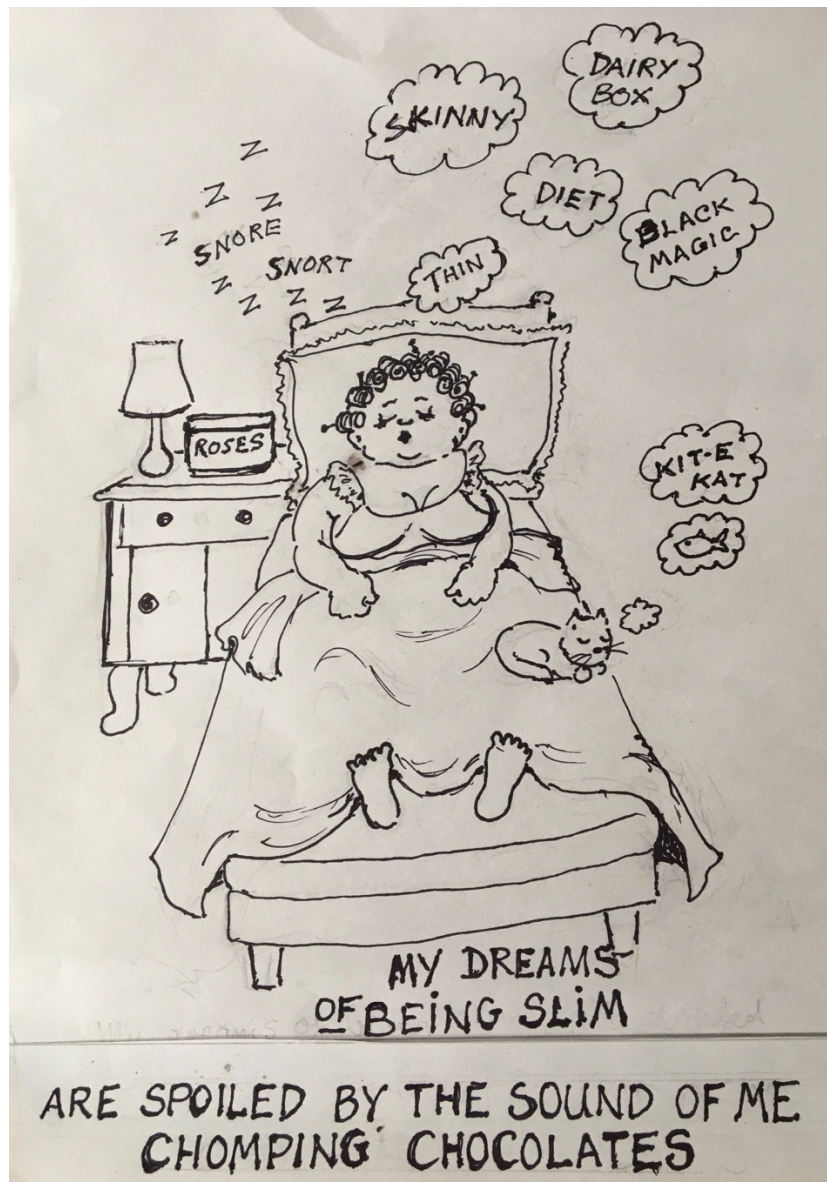 DAIRY
BOX
SKINNY
DIET
BLACK
MAGIC
THIN
Z
Z
Z
Z
SNORE
SNORT
Z
Z
Z
Z
ROSES
KIT-E
KAT
MY DREAMS
OF BEING SLIM
ARE SPOILED BY THE SOUND OF ME
CHOMPING CHOCOLATES